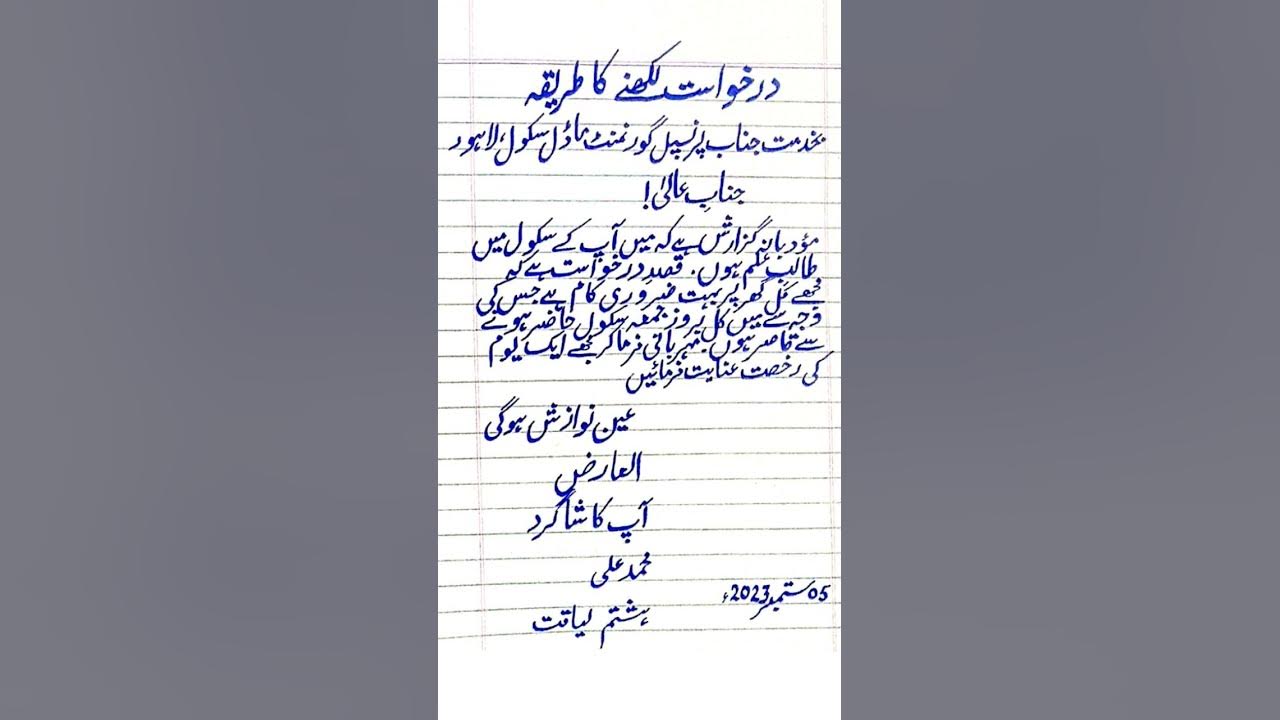 درخواست لکھنے کا طریقہ
بخدمت جناب پرنسپل گورنمنٹ ماڈل سکول، لاہور
جنابِ عالیٰ!
مؤدبانہ گزارش ہے کہ میں آپ کے سکول میں
طالب علم ہوں۔ قصدِ درخواست ہے کہ
مجھے کل گھر پر بہت ضروری کام ہے جس کی
وجہ سے میں کل بروز جمعہ سکول حاضر ہونے
سے قاصر ہوں مہربانی فرما کر مجھے ایک یوم
کی رخصت عنایت فرمائیں
عین نوازش ہوگی
العارض
آپ کا شاگرد
محمد علی
05 ستمبر 2023ء
ہشتم لیاقت